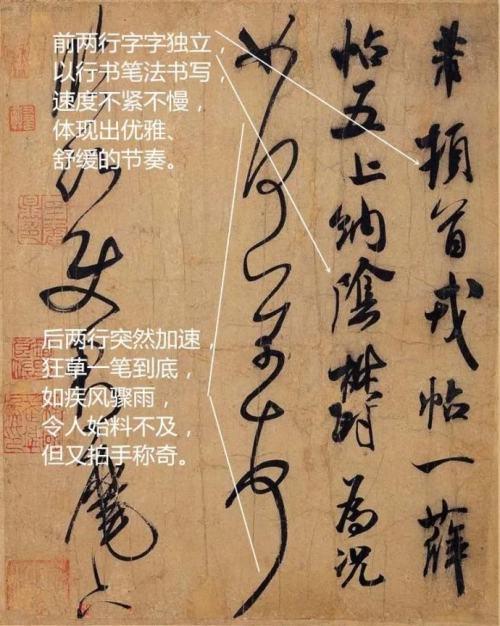 前两行字字独立，
以行书笔法书写，
速度不紧不慢，
体现出优雅、
舒缓的节奏。
后两行突然加速，
狂草一笔到底，
如疾风骤雨，
令人始料不及，
但又拍手称奇。
芾頓首戎帖一薛
帖五上納陰鬱為況
如何芾頓首